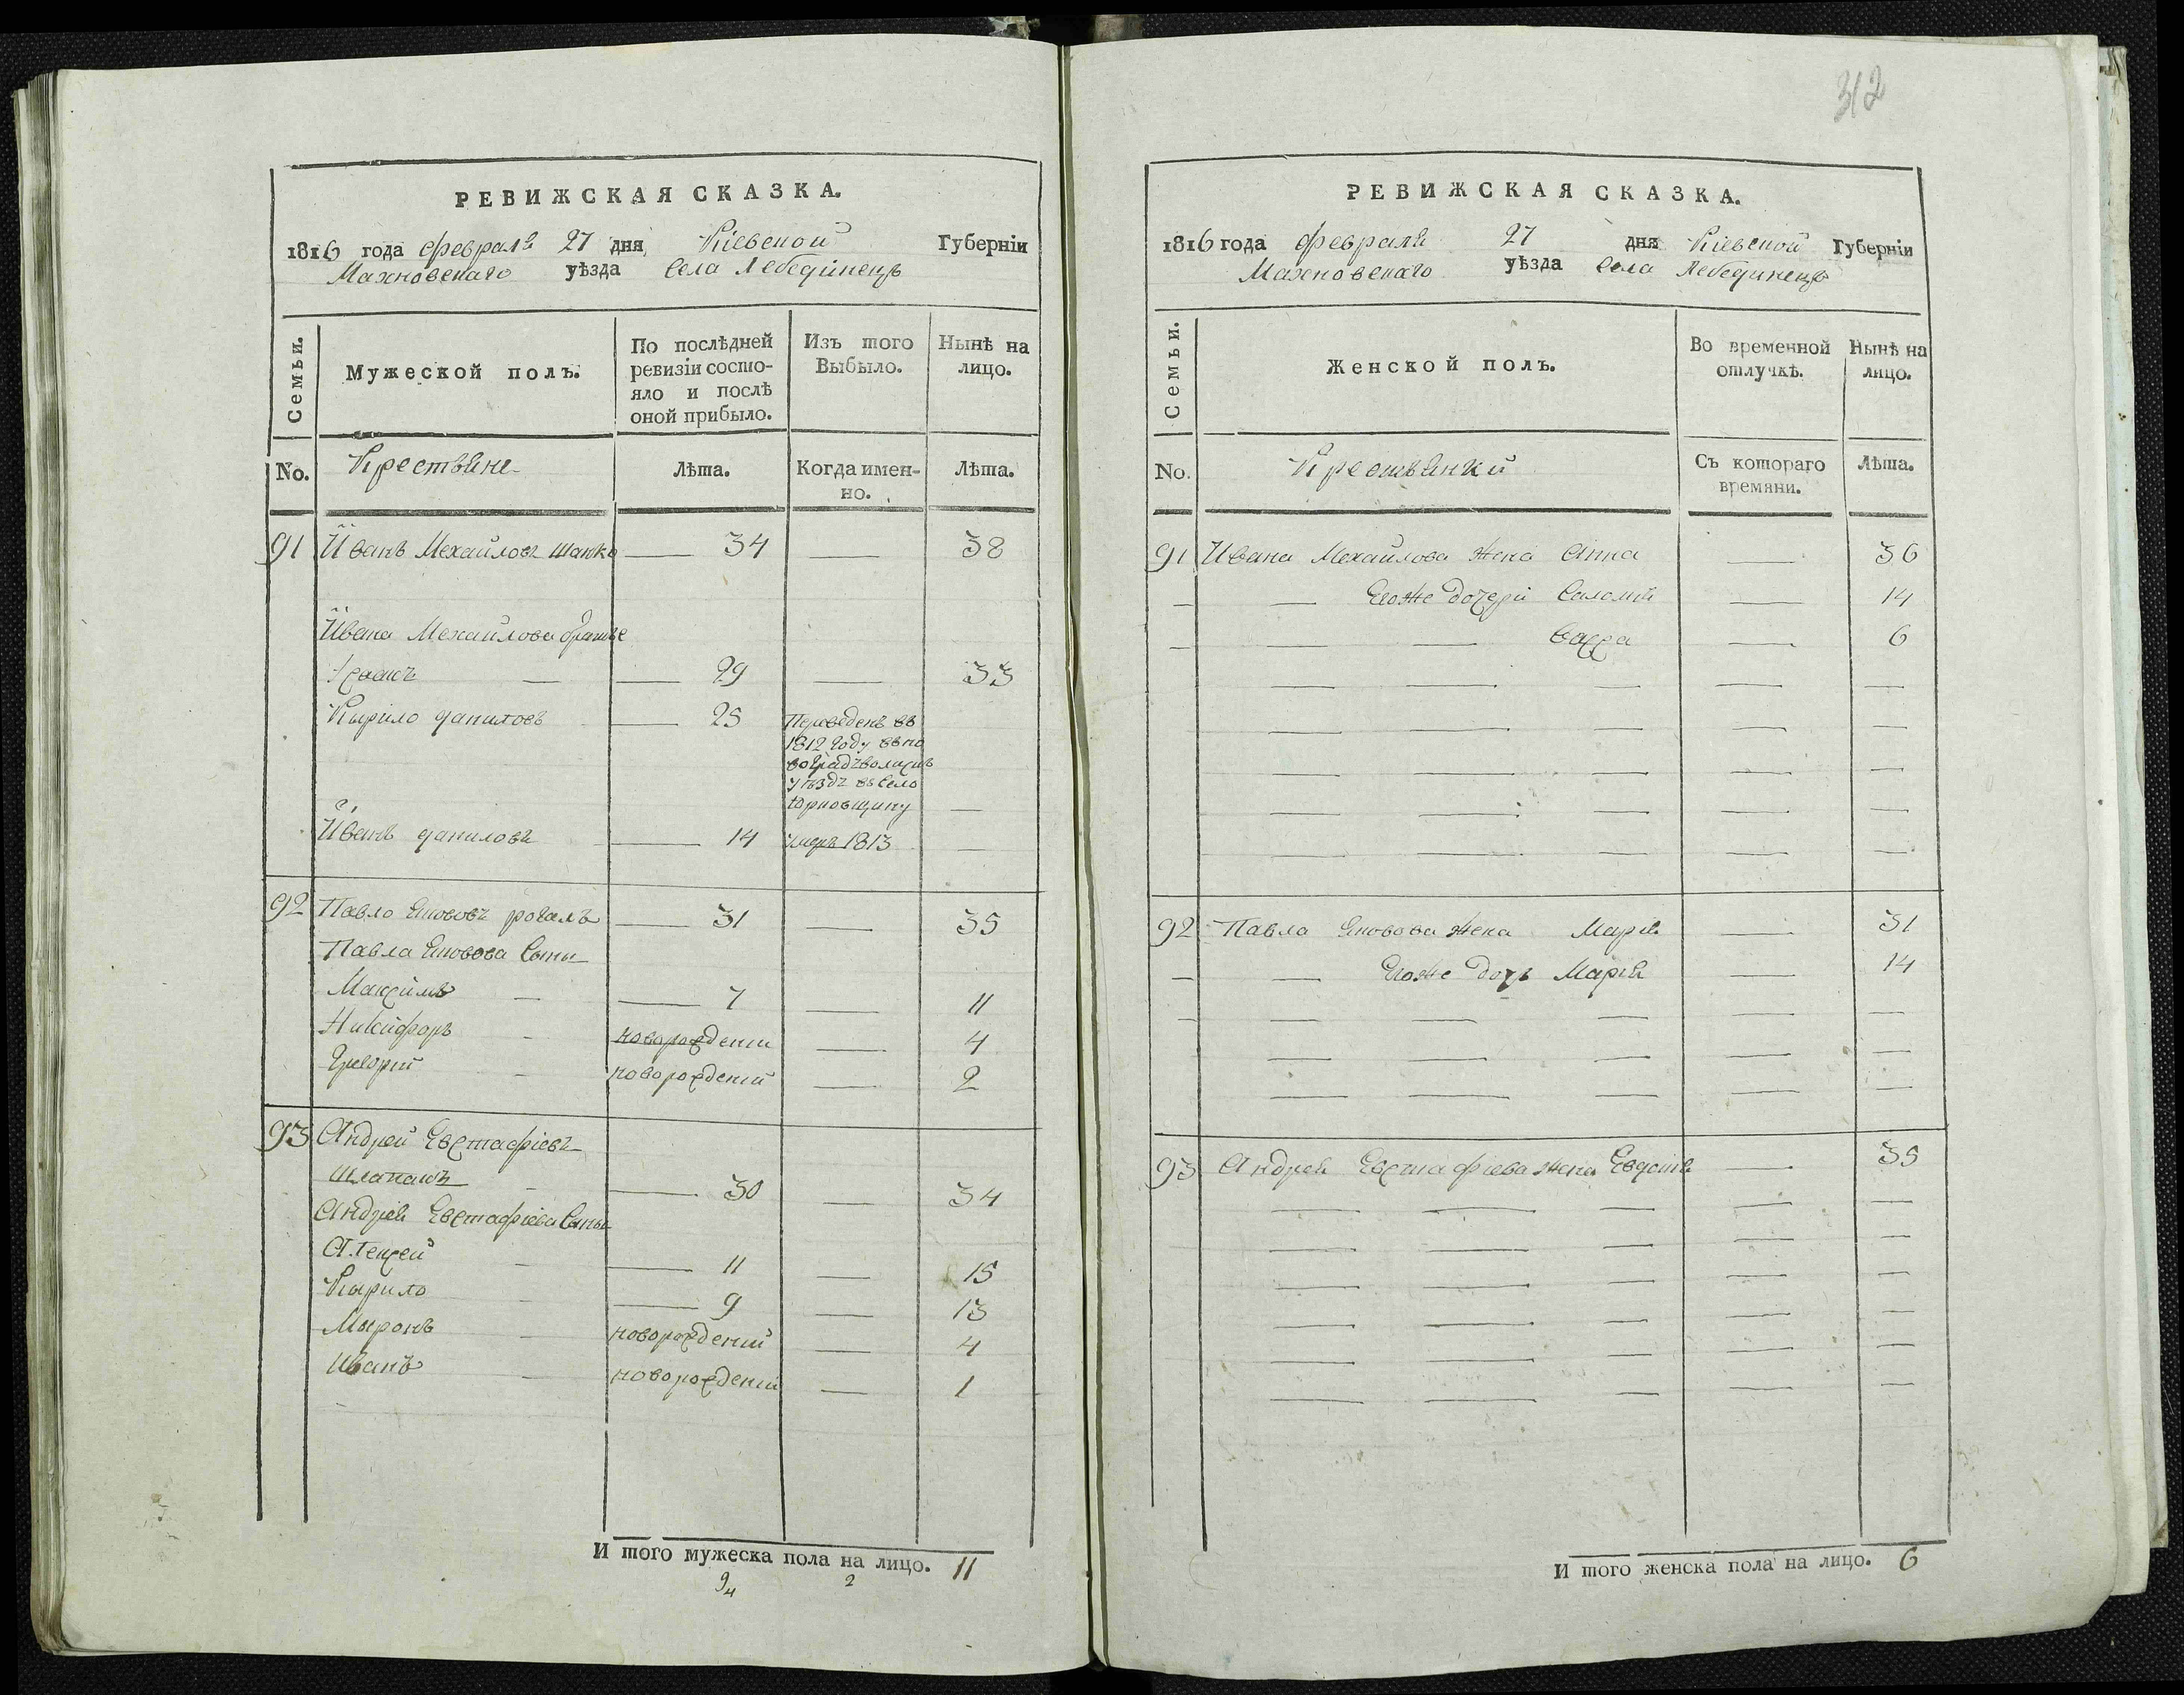 РЕВИЖСКАЯ СКАЗКА.
1816 года февраля 27 дня Кіевской Губерніи
Махновскаго уѣзда села Лебединецъ
Семьи.
Мужеской полъ.
По послѣдней ревизіи состо-
яло и послѣ
оной прибыло.
Изъ того
Выбыло.
Нынѣ на
лицо.
No. Крестьяне Лѣта. Когда имен-
но. Лѣта.
91 Иванъ Михайловъ — 34 — 38
Ивана Михайлова братье
— 29 — 33
Кырило даниловъ — 25 Переведенъ въ
1812 году въ но
воградъволынъ
уѣздъ въ село
Юровщину —
Иванъ даниловъ — 14 умеръ 1813 —
92 Павло Якововъ — 31 — 35
Павла Яковова сыны
Максимъ — — 7 — 11
Никифоръ - новорожденни — 4
Григорій - новорожденій — 2
93 Андрей Евстафіевъ
- — 30 — 34
Андрея Евстафіева сыны
Алексей - — 11 — 15
Кырило - — 9 — 13
Мыронъ — новорожденій — 4
Иванъ — новорожденій — 1
И того мужеска пола на лицо. 11
94 2
312
РЕВИЖСКАЯ СКАЗКА.
1816 года февраля 27 дня Кіевской Губерніи
Махновскаго уѣзда села Лебединецъ
Семьи.
Женской полъ.
Во временной
отлучкѣ.
Нынѣ на
лицо.
No. Крестьянки Съ котораго
времяни. Лѣта.
91 Ивана Михайлова жена Анна — 36
— — Егоже дочери Саломія — 14
— — — Васса — 6
92 Павла Яковова жена Марія — 31
— — Егоже дочь Марія — 14
93 Андрея Евстафіева жена — 35
И того женска пола на лицо. 6